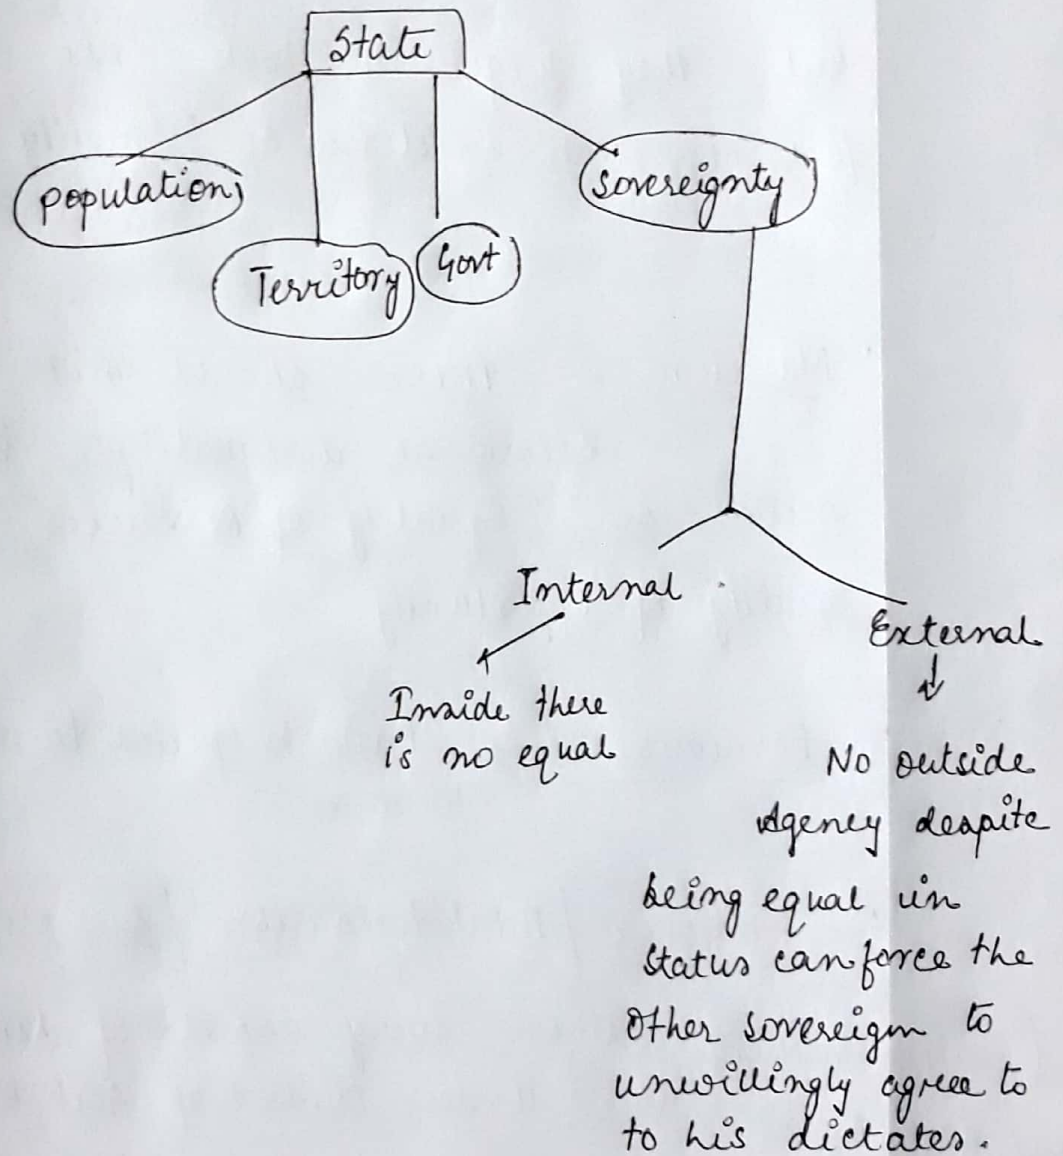 State
population
Territory
Govt
Sovereignty
Internal
External
Inside there
is no equal
No outside
Agency despite
being equal in
status can force the
other sovereign to
unwillingly agree to
to his dictates.